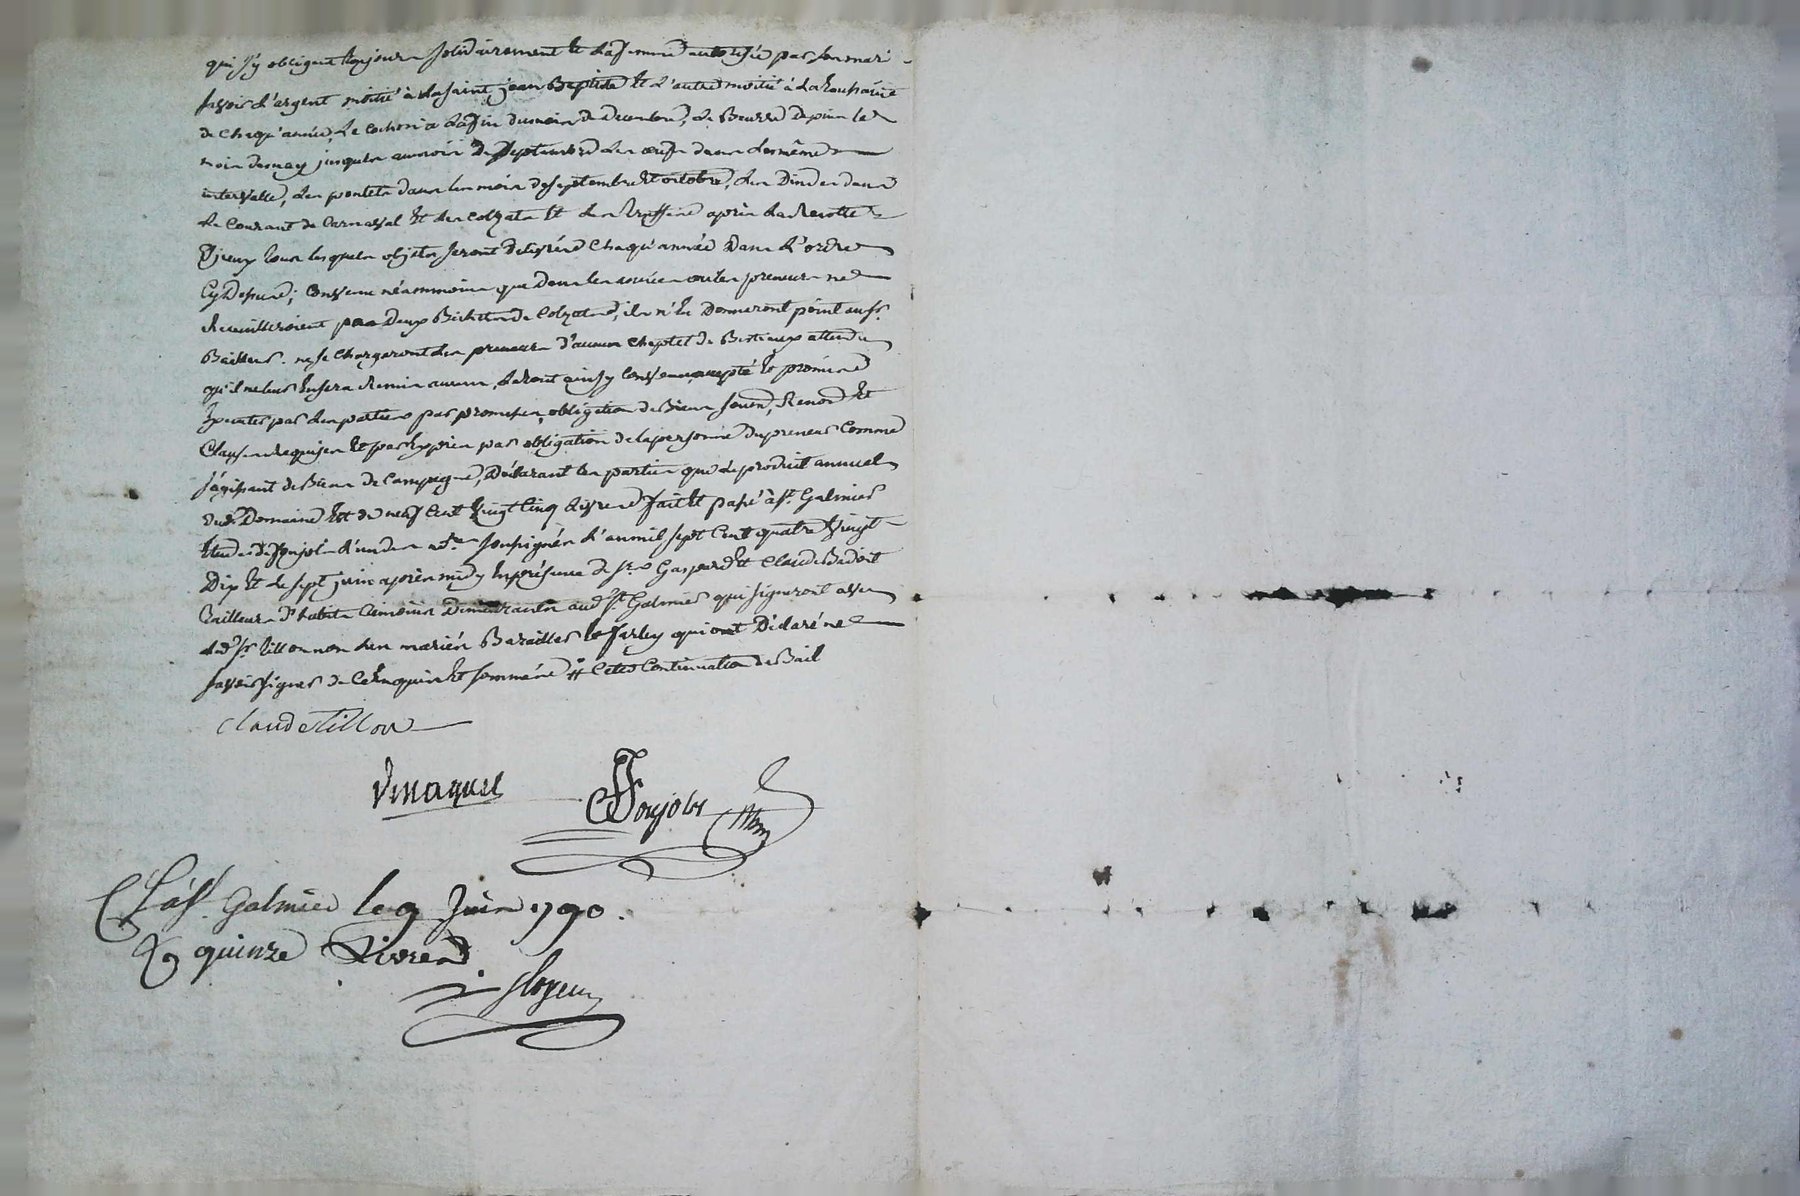 qui s'y obligent toujours solidairement et la femme autorisée par son mari
savoir l'argent moitié à la saint jean Baptiste et l'autre moitié à la Toussainte
de chaqu'année, Le cochon à la fin du mois de Decembre, Le Beurre depuis le
mois de may jusques au mois de Septembre Les œufs dans le même
intervalle, Les poulets dans les mois de septembre et octobre, Les Dindes dans
Le Courant de Carnaval et les Colzats et les truffes après la Recolte
Tous lesquels objets seront delivrés chaqu'année Dans l'ordre
Cy Dessus; Convenu néammoins que dans les années ou les preneurs ne
Recuilleroient pas Deux Bichets de Colzats, ils n'en Donneront point au sr
Bailleur. ne se chargeront les preneurs d'aucun cheptel de Bestiaux attendu
qu'il ne leur en sera Remis aucun, Le tout ainsy Convenu, accepté et promis
Executer par les parties par promesses, obligation de Biens soumis, Renond et
Clauses requises et par exprès par obligation de la personne du preneur Comme
s'agissant de Biens de Campagne, Déclarant les parties que le produit annuel
dud Domaine est de neuf Cent vingt Cinq Livres fait et passé à st Galmier
Etude de Poujol l'un des nres soussignés l'an mil sept Cent quatre vingt
Dix et le sept juin après midy En présence de srs Gaspard et Claude Badoit
Tailleurs d'habits temoins Demeurants aud st Galmier qui signeront avec
led sr tillon non les mariés Barailler et farley qui ont Déclaré ne
savoir signer de Ce Enquis et sommés # Cette Continuation de Bail
Claude tillon
Poujol
C à st Galmier le 9 Juin 1790.
R quinze Livres